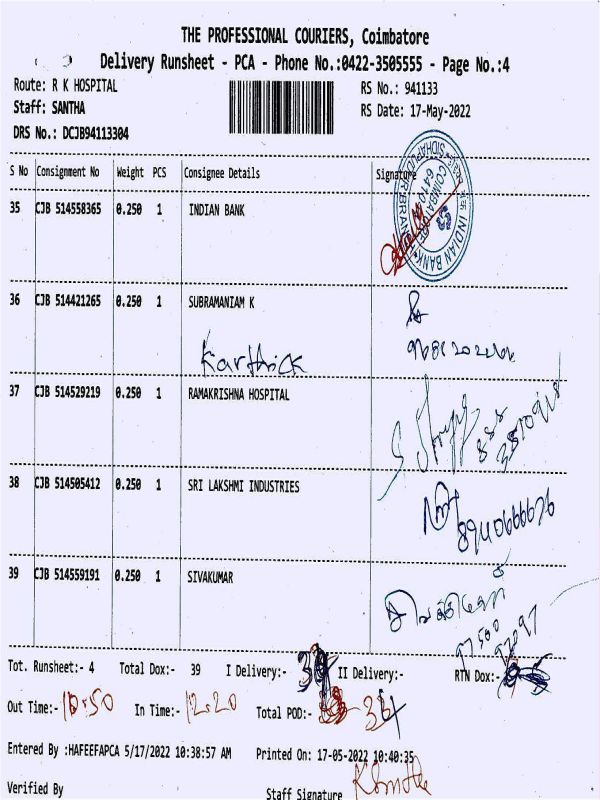 THE PROFESSIONAL COURIERS, Coimbatore
Delivery Runsheet - PCA - Phone No.:0422-3505555 - Page No.:4
Route: R K HOSPITAL RS No.: 941133
Staff: SANTHA RS Date: 17-May-2022
DRS No.: DCJB94113304
S No Consignment No Weight PCS Consignee Details Signature
35 CJB 514558365 0.250 1 INDIAN BANK
INDIAN BANK
COIMBATORE
36 CJB 514421265 0.250 1 SUBRAMANIAM K
Karthick
37 CJB 514529219 0.250 1 RAMAKRISHNA HOSPITAL
38 CJB 514505412 0.250 1 SRI LAKSHMI INDUSTRIES
8940666676
39 CJB 514559191 0.250 1 SIVAKUMAR
97500
Tot. Runsheet:- 4 Total Dox:- 39 I Delivery:- II Delivery:- RTN Dox:-
Out Time:- 10.50 In Time:- 12.20 Total POD:- 34
Entered By :HAFEEFAPCA 5/17/2022 10:38:57 AM Printed On: 17-05-2022 10:40:35
Verified By Staff Signature